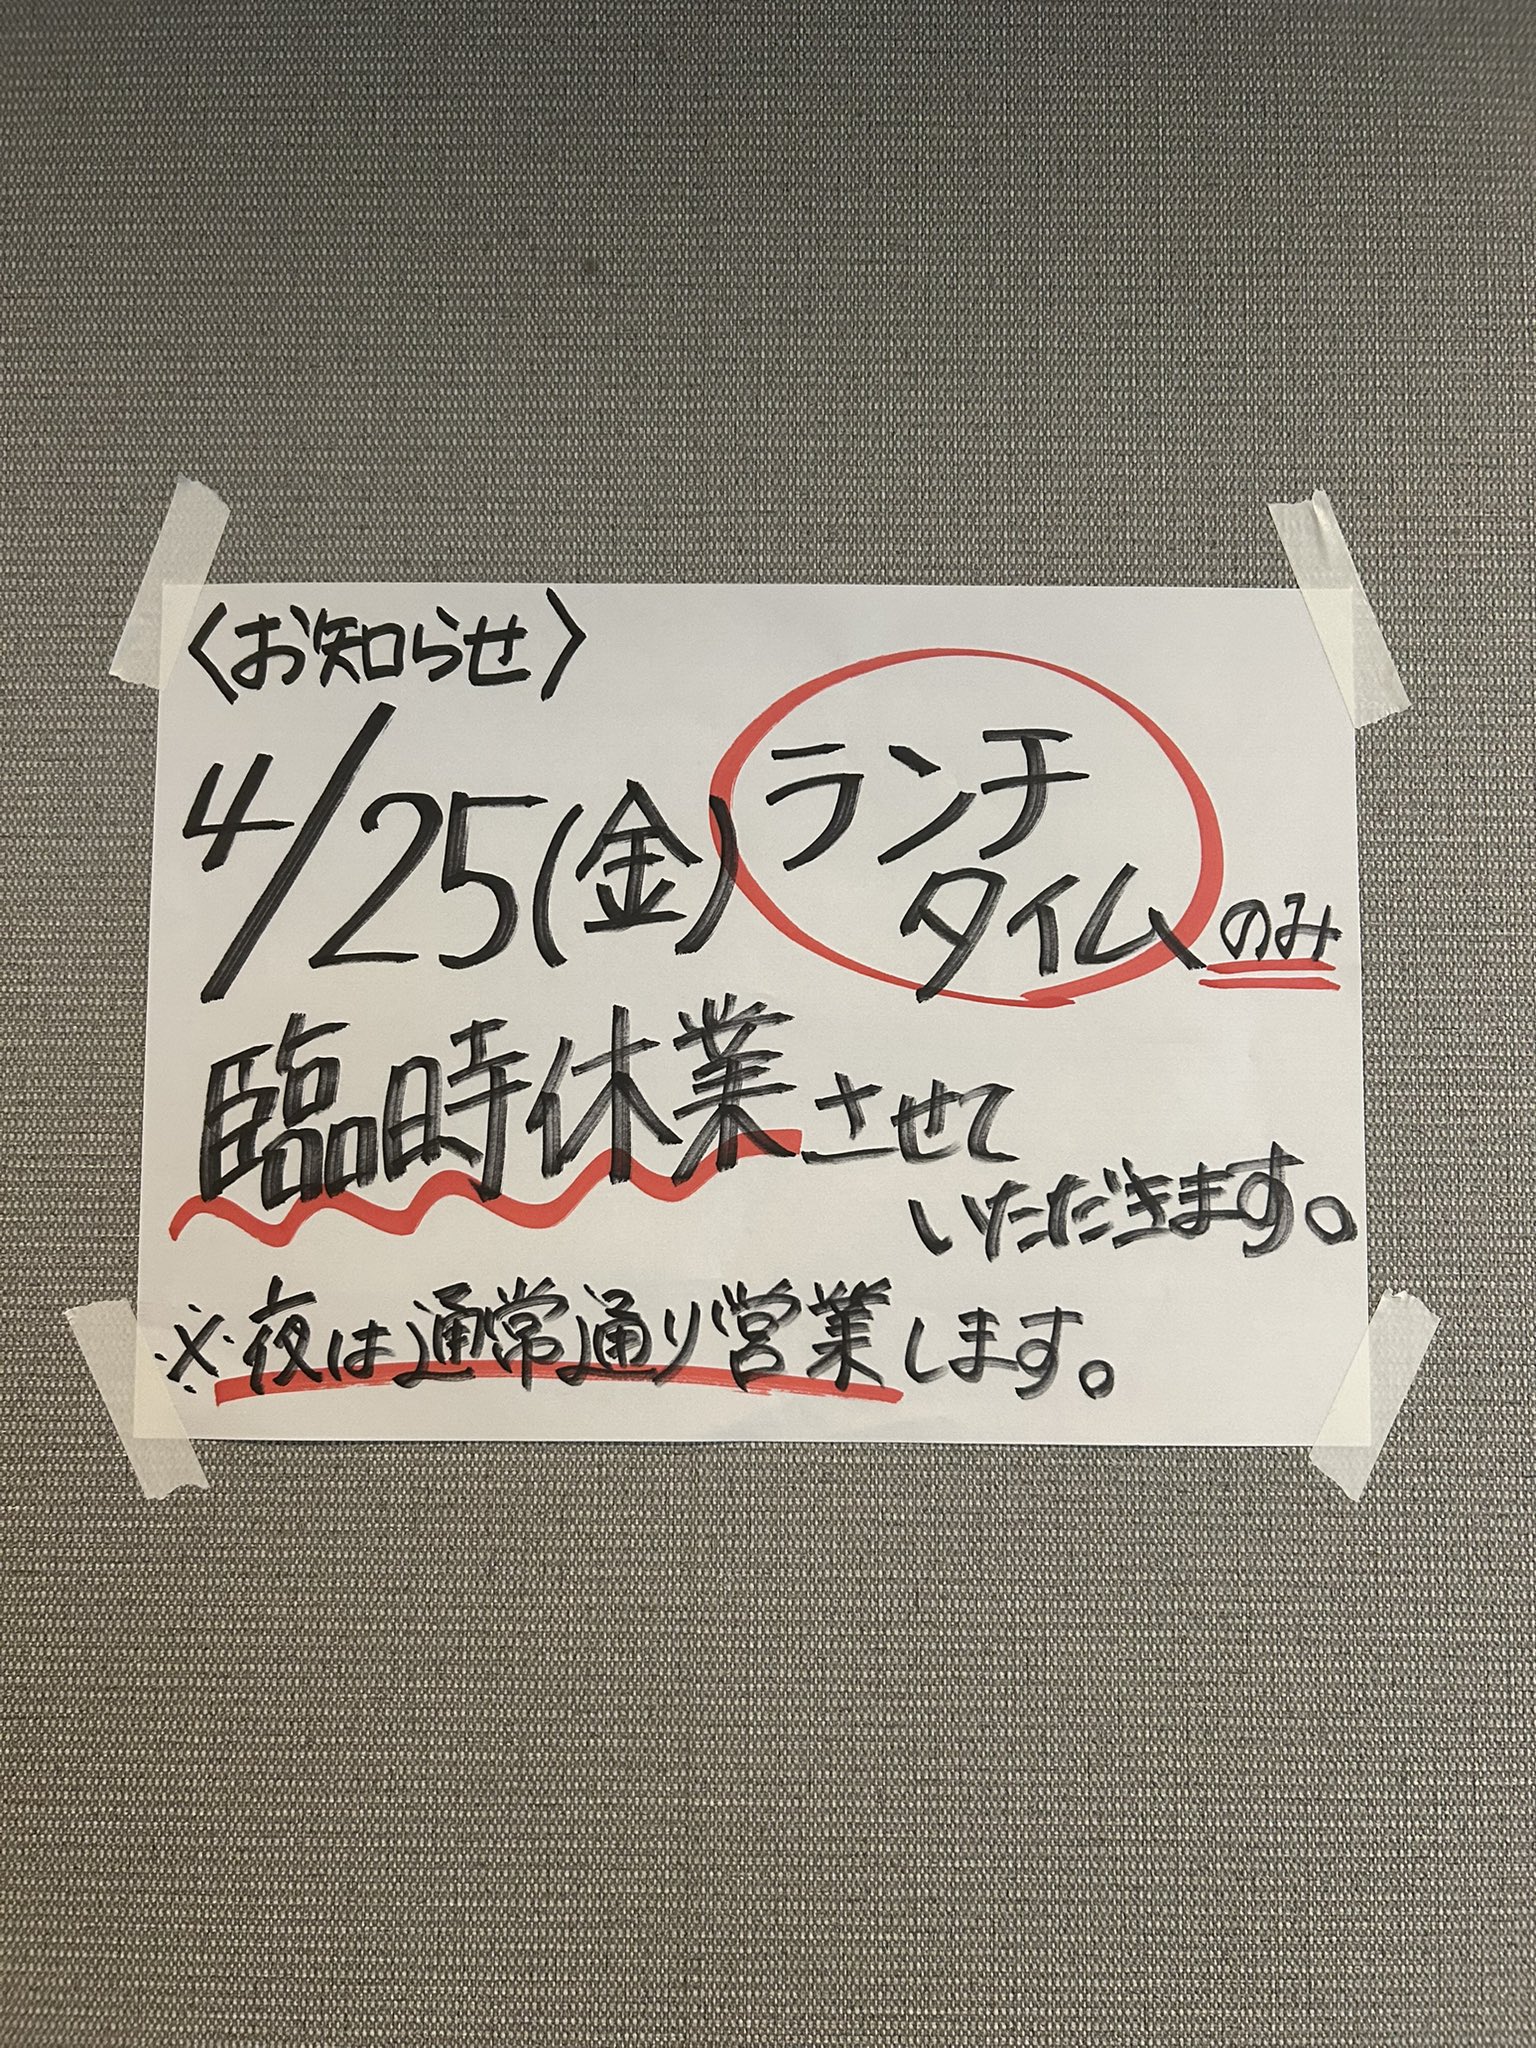 〈お知らせ〉
4/25(金)ランチ
タイムのみ
臨時休業させて
いただきます。
※夜は通常通り営業します。